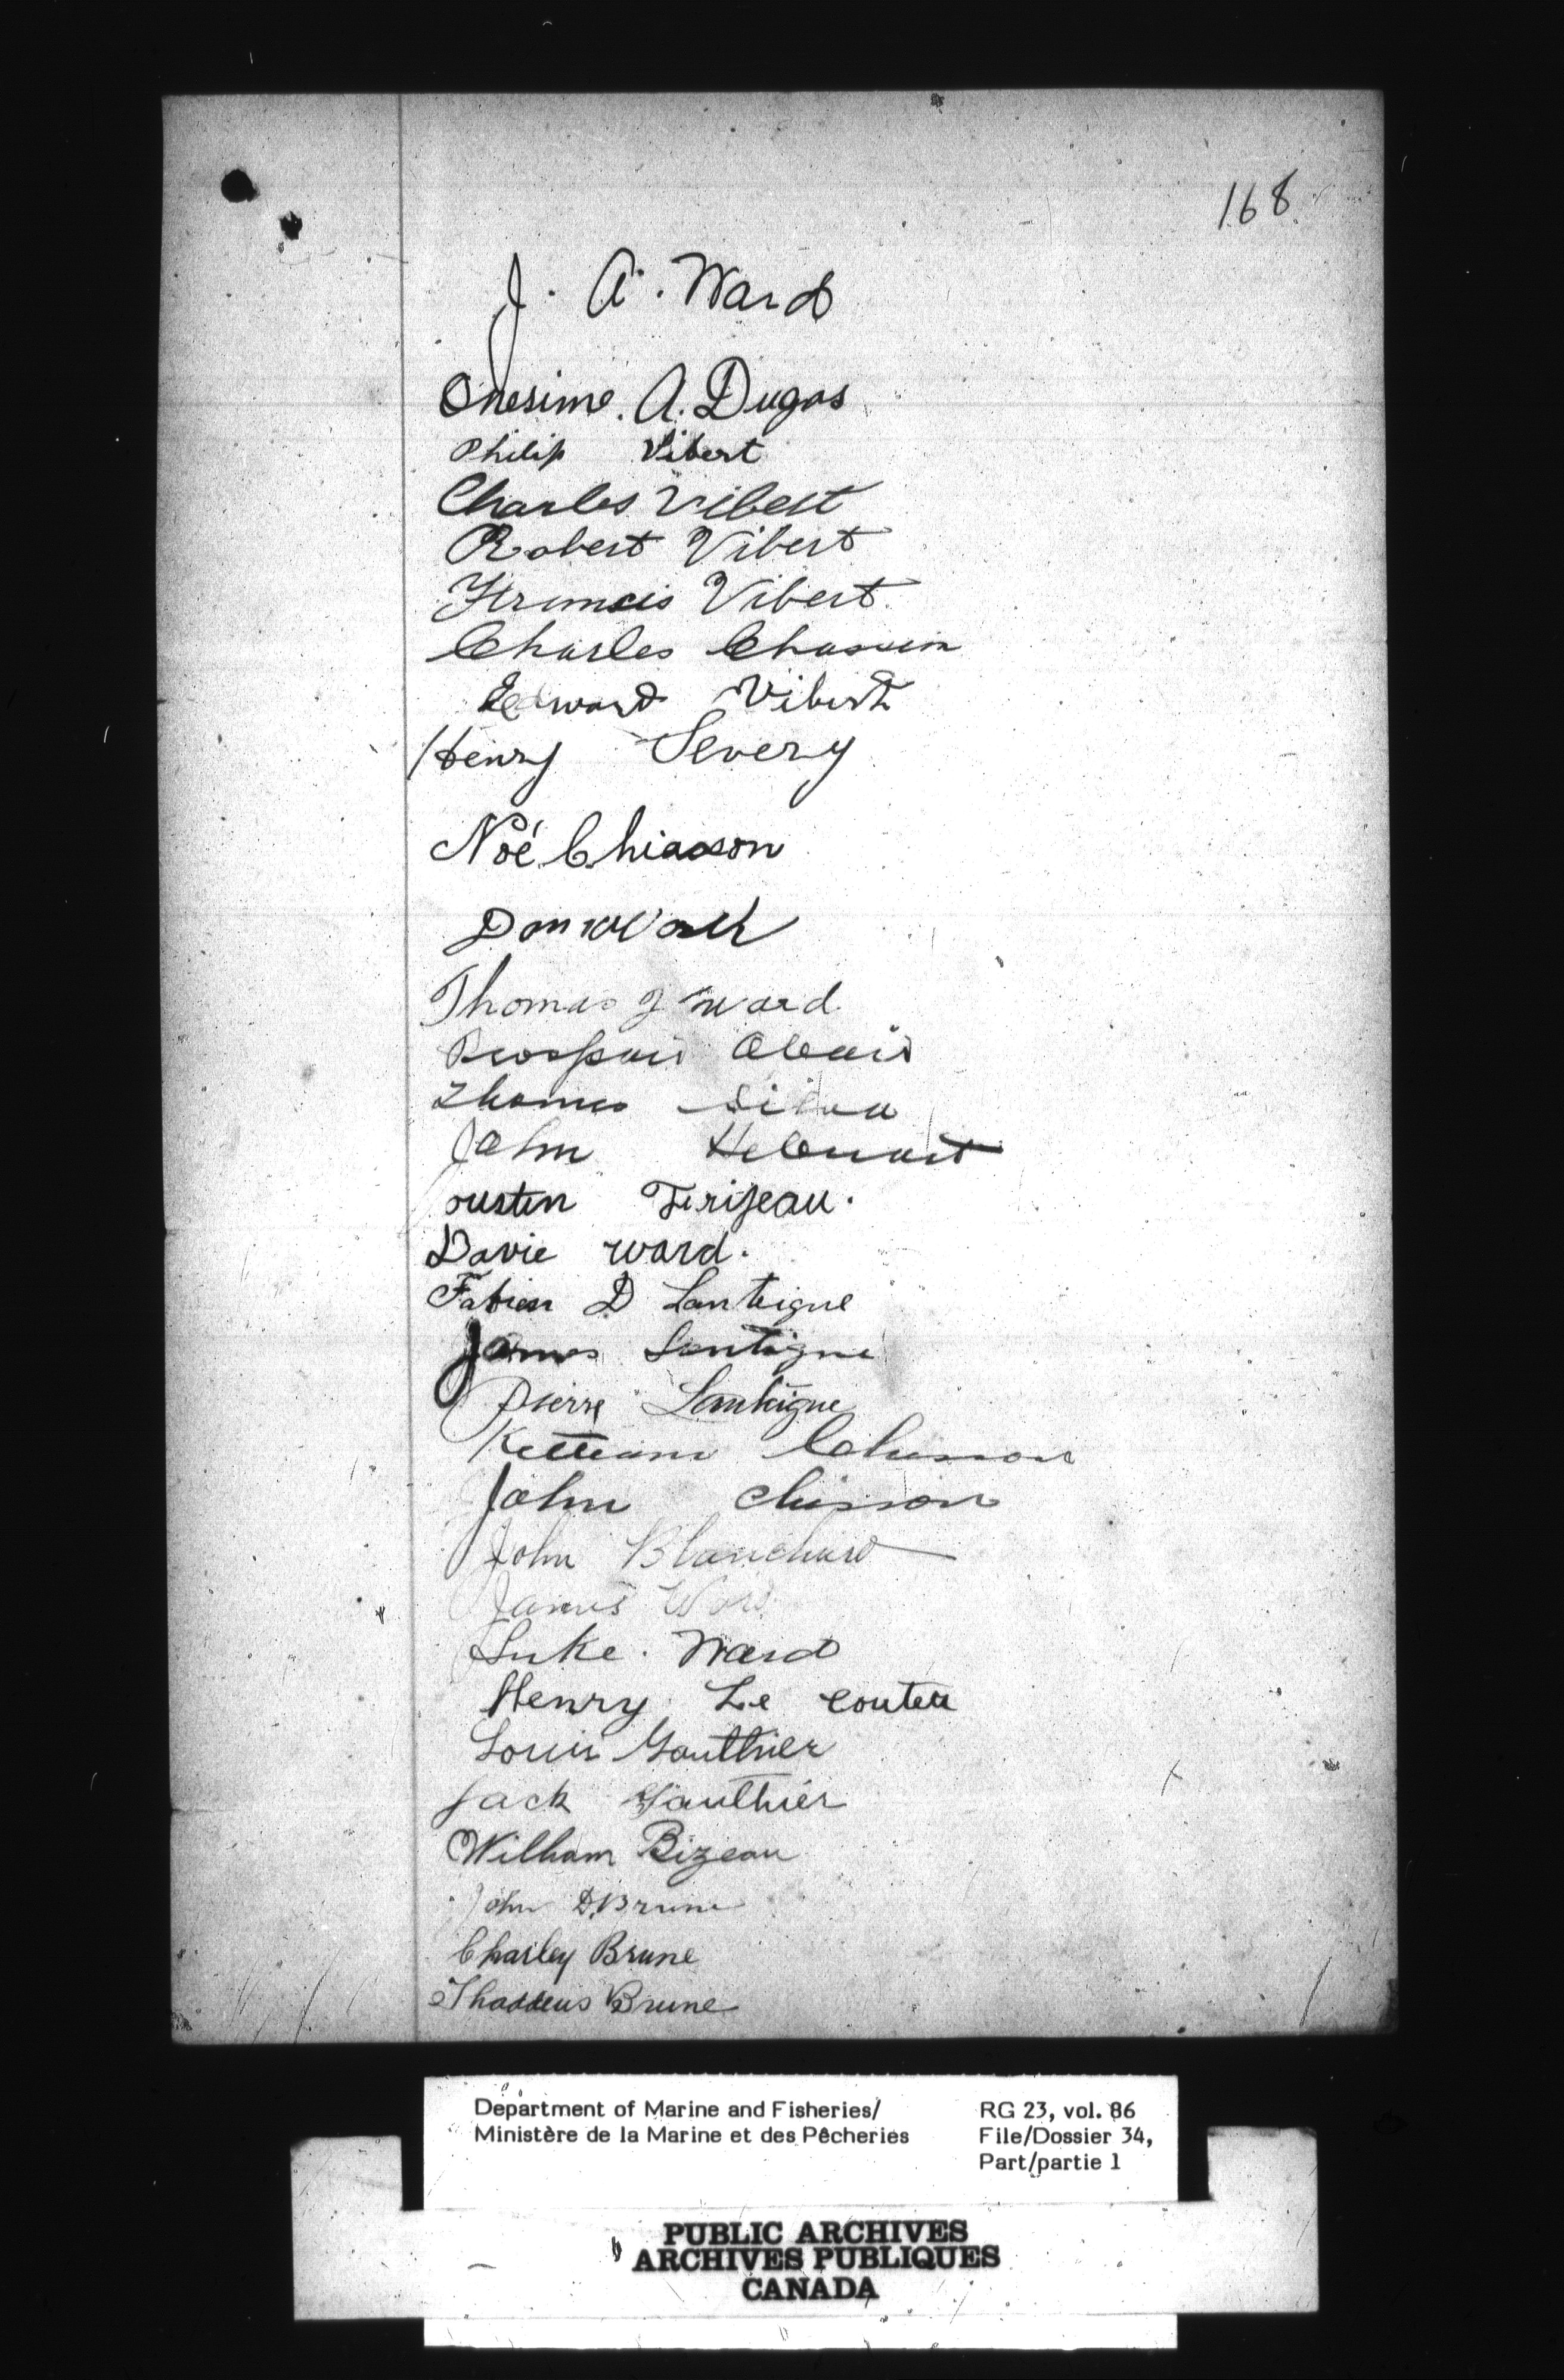 168
J. A. Ward
Onesime. A. Dugas
Philip Vibert
Charles Vibert
Robert Vibert
Francis Vibert.
Charles Chassin
Edward Vibert
Henry Severy
Noé Chiasson
Thomas J Ward
Thomas
John
oustin
Davie ward.
Fabien D Lanteigne
James Lantigne
Pierre Lantiegne
Chiasson
John Chisson
John Blanchard
James Ward
Luke. Ward
Henry Le couteu
Louis Gauthier
Jack Gauthier
William Bizeau
John D. Brune
Charley Brune
Thaddeus Brune
Department of Marine and Fisheries/ RG 23, vol. 86
Ministère de la Marine et des Pêcheries File/Dossier 34,
Part/partie 1
PUBLIC ARCHIVES
ARCHIVES PUBLIQUES
CANADA